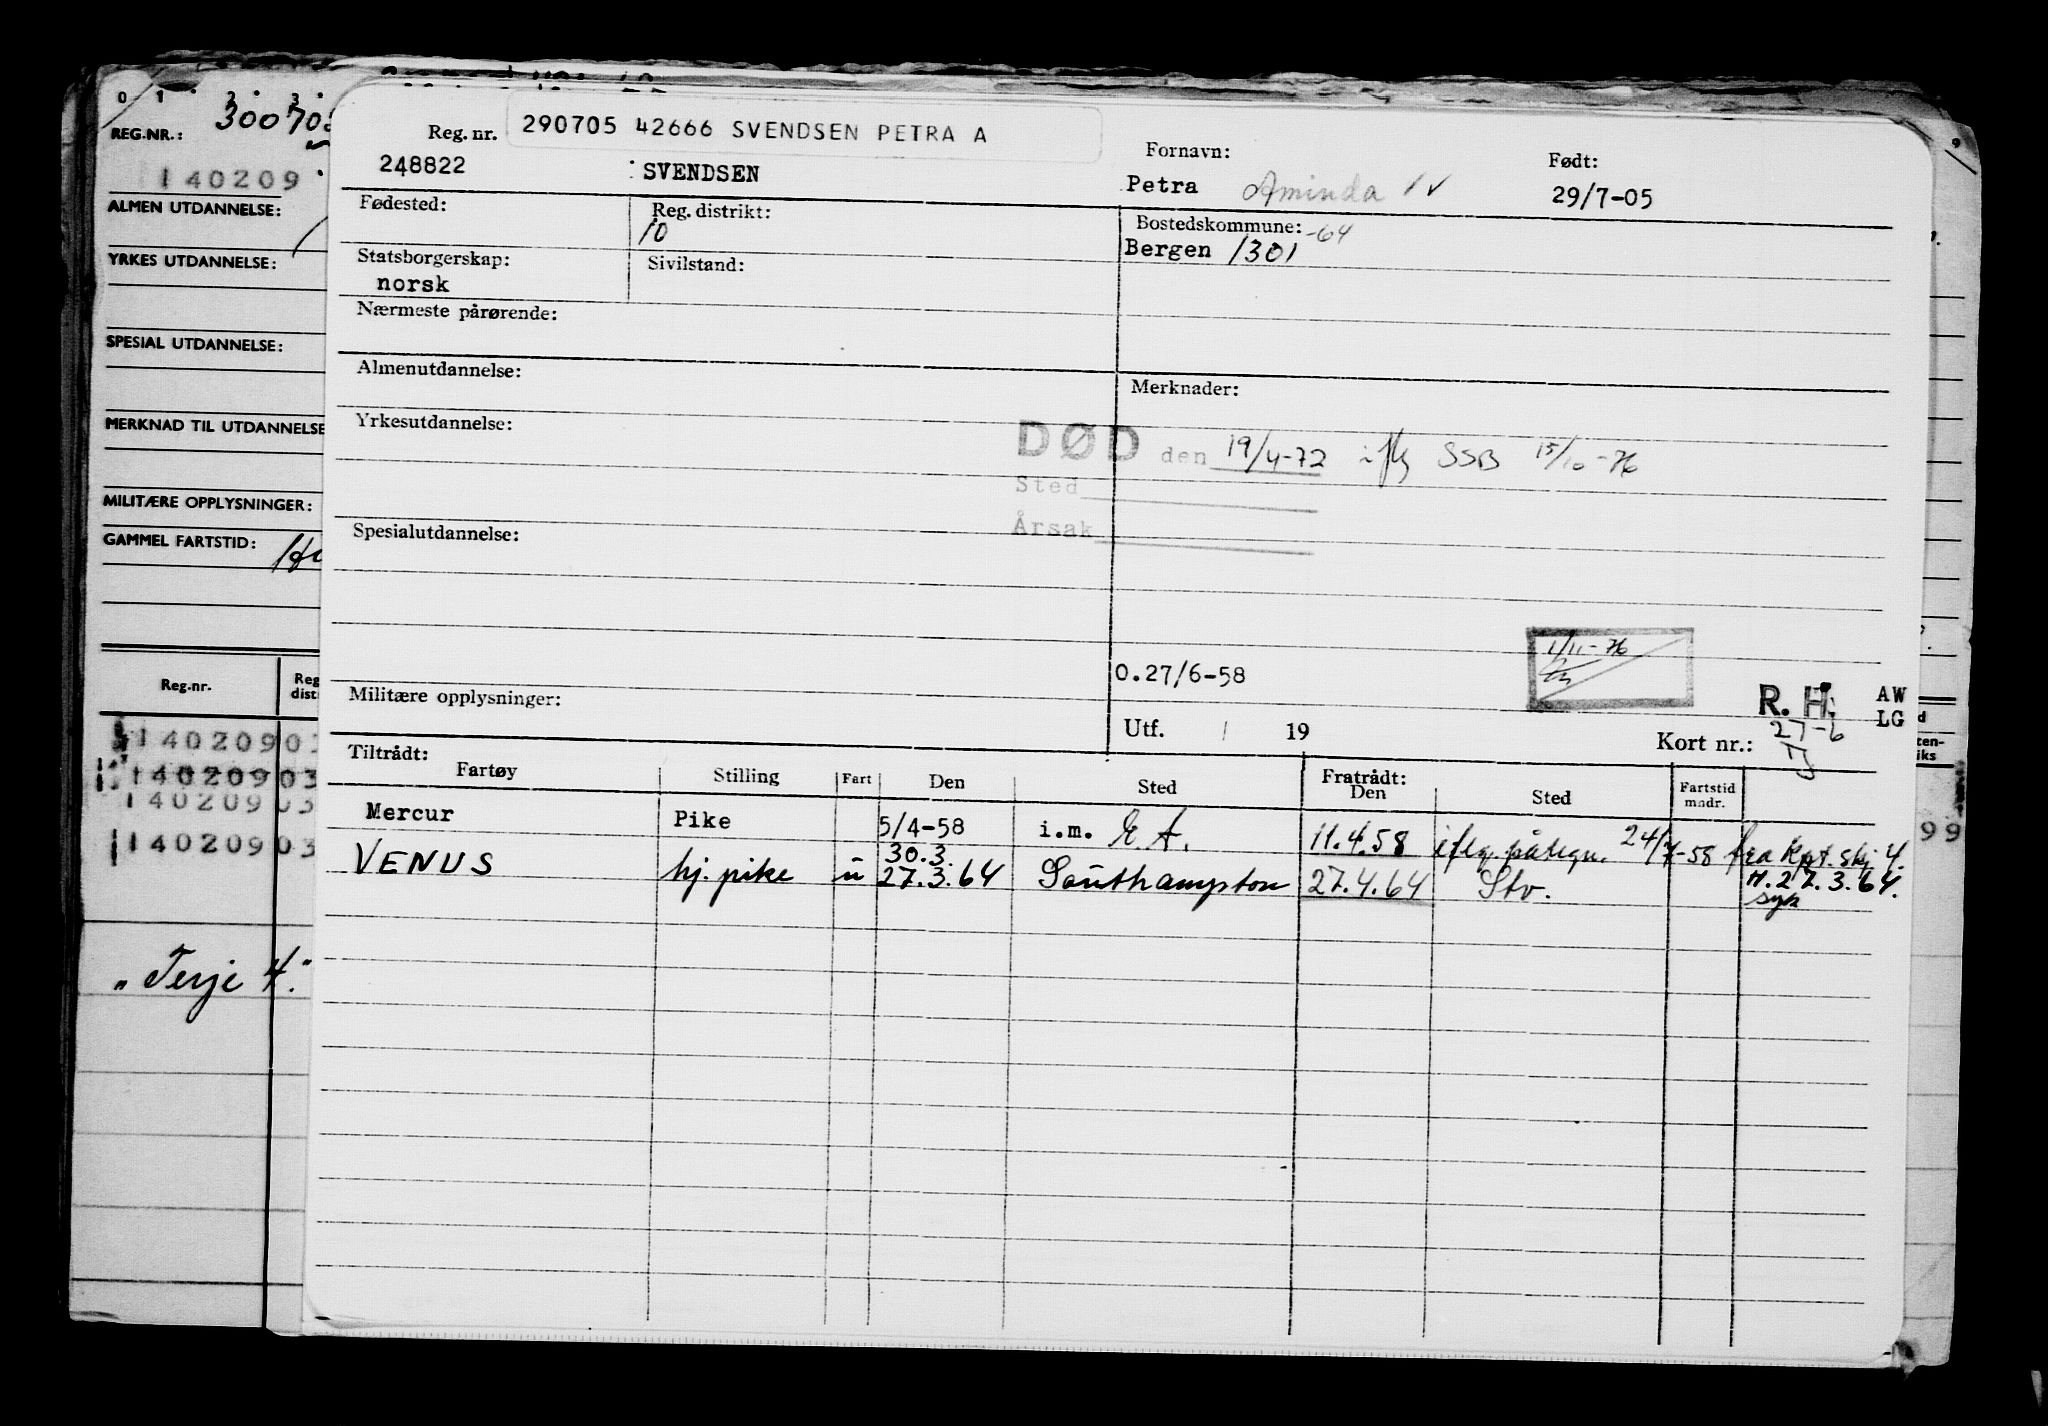 0 1 2 3
REG.NR.: 300705
140209
ALMEN UTDANNELSE:
YRKES UTDANNELSE:
SPESIAL UTDANNELSE:
MERKNAD TIL UTDANNELSE
MILITÆRE OPPLYSNINGER:
GAMMEL FARTSTID:
Reg.nr. Reg
distr
14020903
14020903
14020903
14020903
„Terje 4."
Reg. nr. 290705 42666 SVENDSEN PETRA A
248822 SVENDSEN
Fornavn: Født:
Petra Aminda 29/7-05
Fødested: Reg. distrikt: Bostedskommune: -64
10 Bergen 1301
Statsborgerskap: Sivilstand:
norsk
Nærmeste pårørende:
Almenutdannelse: Merknader:
Yrkesutdannelse:
DØD den 19/4-72 iflg SSB 15/10-76
Sted
Årsak
Spesialutdannelse:
1/11-76
0.27/6-58
Militære opplysninger:
R. H. AW
27-6 LG
Utf. / 19 Kort nr.:
Tiltrådt: Fratrådt:
Fartøy Stilling Fart Den Sted Den Sted Fartstid
mndr.
Mercur Pike 5/4-58 i.m. E.A. 11.4.58 iflg. påtegn. 24/7-58 fra Kpt. skj 4.
30.3.
VENUS hj. pike u 27.3.64 Southampton 27.4.64 Stv. M. 27.3.64.
syk
9
ten-
iks
99